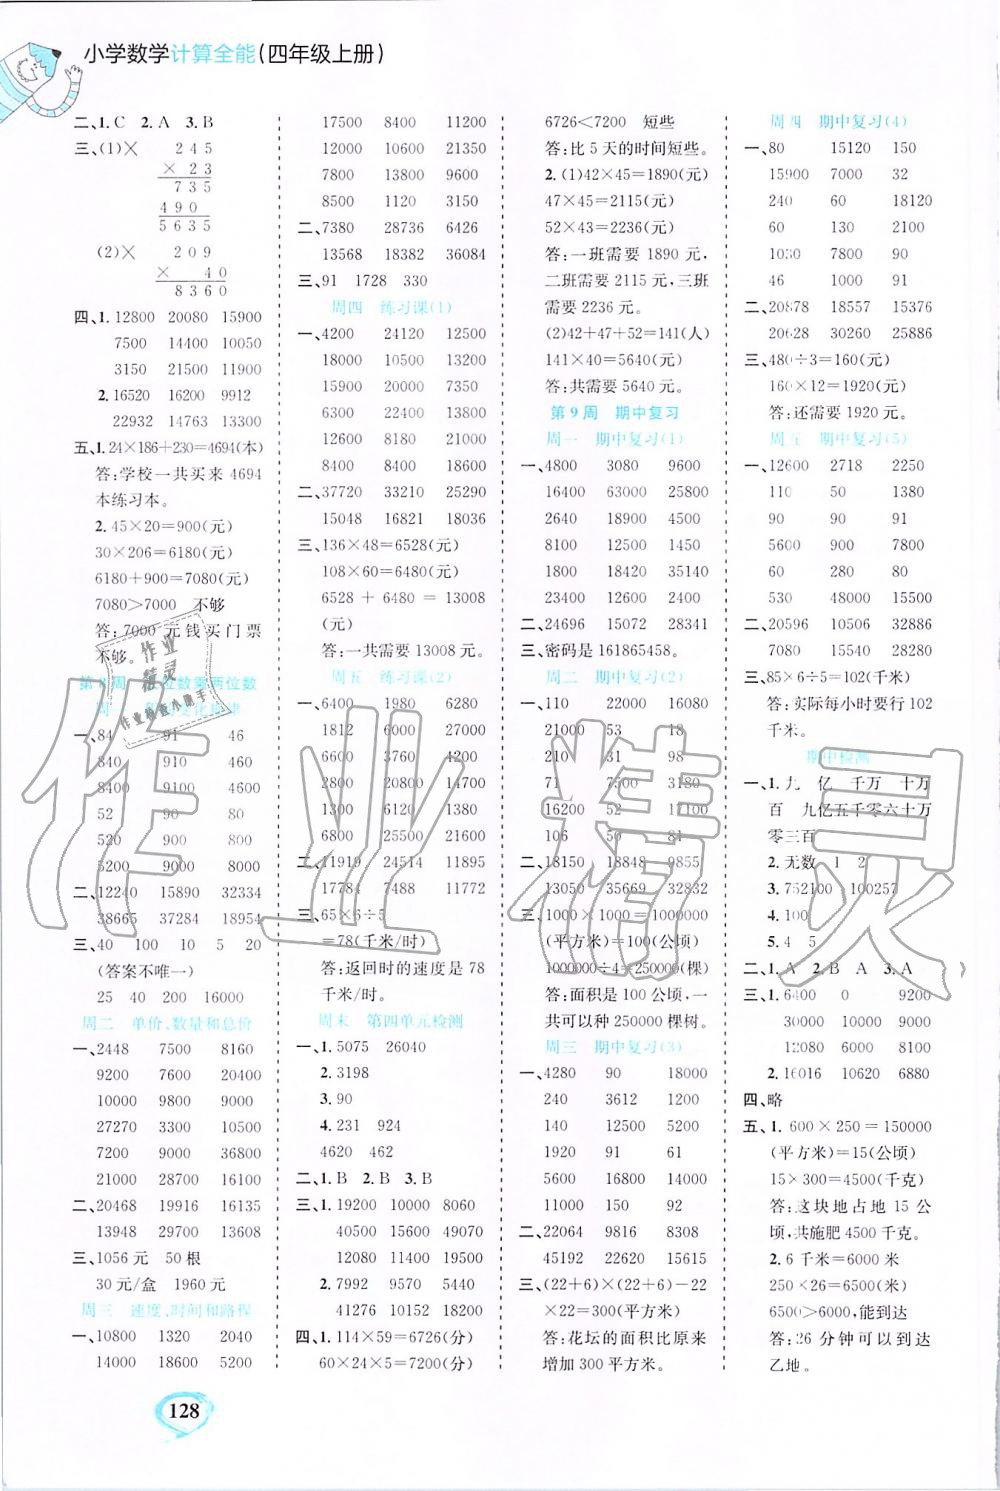 小学数学计算全能(四年级上册)
二、1.C 2.A 3.B
三、(1)× 2 4 5
× 2 3
7 3 5
4 9 0
5 6 3 5
(2)× 2 0 9
× 4 0
8 3 6 0
四、1.12800 20080 15900
7500 14400 10050
3150 21500 11900
2.16520 16200 9912
22932 14763 13300
五、1.24×186+230=4694(本)
答:学校一共买来 4694
本练习本。
2.45×20=900(元)
30×206=6180(元)
6180+900=7080(元)
7080>7000 不够
答:7000 元钱买门票
不够。
位数乘两位数
一、84 91 46
840 910 460
8400 9100 4600
52 90 80
520 900 800
5200 9000 8000
二、12240 15890 32334
38665 37284 18954
三、40 100 10 5 20
(答案不唯一)
25 40 200 16000
周二 单价、数量和总价
一、2448 7500 8160
9200 7600 20400
10000 9800 9000
27270 3300 10500
7200 9000 36800
21000 28700 16100
二、20468 16926 16135
13948 29700 13608
三、1056 元 50 根
30 元/盒 1960 元
周三 速度、时间和路程
一、10800 1320 2040
14000 18600 5200
17500 8400 11200
12000 10600 21350
7800 13800 9600
8500 1120 3150
二、7380 28736 6426
13568 18382 36084
三、91 1728 330
周四 练习课(1)
一、4200 24120 12500
18000 10500 13200
15900 20000 7350
6300 22400 13800
12600 8180 21000
8400 8400 18800
二、37720 33210 25290
15048 16821 18036
三、136×48=6528(元)
108×60=6480(元)
6528 + 6480 = 13008
(元)
答:一共需要 13008 元。
周五 练习课(2)
一、6400 1980 6280
1812 6000 27000
3000 3760 4200
2800 20800 14700
1300 6120 10800
6800 25500 21600
二、11919 24514 11895
17784 7488 11772
三、65×6÷5
=78(千米/时)
答:返回时的速度是 78
千米/时。
周末 第四单元检测
一、1.5075 26040
2.3198
3.90
4.231 924
4620 462
二、1.B 2.B 3.B
三、1.19200 10000 8060
40500 15600 49070
12080 11400 16200
2.7992 9570 5440
41276 10152 18200
四、1.114×59=6726(分)
60×24×5=7200(分)
6726<7200 短些
答:比 5 天的时间短些。
2.(1)42×45=1890(元)
47×45=2115(元)
52×43=2236(元)
答:一班需要 1890 元,
二班需要 2115 元,三班
需要 2236 元。
(2)42+47+52=141(人)
141×40=5640(元)
答:共需要 5640 元。
第 9 周 期中复习
周一 期中复习(1)
一、4800 3080 9600
16400 63000 25800
2640 18900 4500
8100 12500 1450
1800 18420 35140
23400 12600 26400
二、24696 15072 28341
三、密码是 161865458。
周二 期中复习(2)
一、110 22000 16080
21000 53 18
71 7500 3180
16200 52 11100
106 50 81
二、18150 18848 9855
13050 35669 32832
三、1000 × 1000 = 1000000
(平方米)=100(公顷)
1000000÷4=250000(棵)
答:面积是 100 公顷,一
共可以种 250000 棵树。
周三 期中复习(3)
一、4280 90 18000
240 3612 1200
140 12500 5200
1920 91 61
5600 16800 14000
11000 150 92
二、22064 9816 8308
45192 22620 15615
三、(22+6)×(22+6)-22
×22=300(平方米)
答:花坛的面积比原来
增加 300 平方米。
周四 期中复习(4)
一、80 15120 150
15900 7000 32
240 60 18120
60 130 2100
1030 7800 90
46 1000 91
二、20878 18557 15376
20628 30260 25886
三、480÷3=160(元)
160×12=1920(元)
答:还需要 1920 元。
周五 期中复习(5)
一、12600 2718 2250
110 50 1380
90 90 91
5600 900 7800
60 280 80
530 48000 15500
二、20596 10506 32886
7080 15540 28028
三、85×6÷5=102(千米)
答:实际每小时要行 102
千米。
期中检测
一、1.九 亿 千万 十万
百 九亿五千零六十万
零三百
2.无数 1 2
3.752100 100257
4.100
5.4 5
二、1.A 2.B A 3.A
三、1.6400 0 9200
30000 10000 9000
12080 6000 8100
2.16016 10620 6880
四、略
五、1. 600 × 250 = 150000
(平方米)=15(公顷)
15×300=4500(千克)
答:这块地占地 15 公
顷,共施肥 4500 千克。
2.6 千米=6000 米
250×26=6500(米)
6500>6000,能到达
答:26 分钟可以到达
乙地。
128
作业精灵